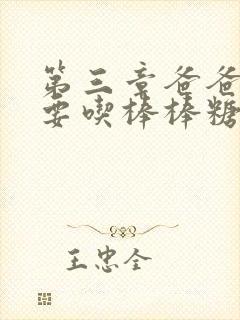 第三章爸爸
要喫棒棒糖
王忠全